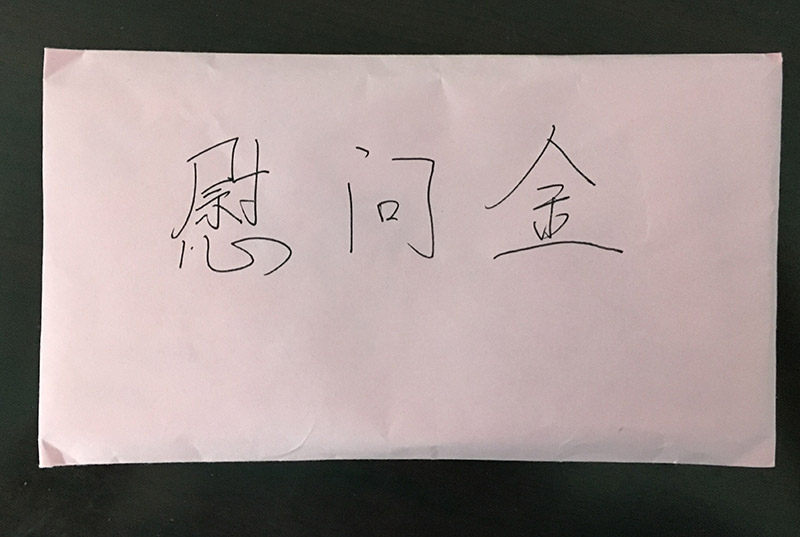 慰问金